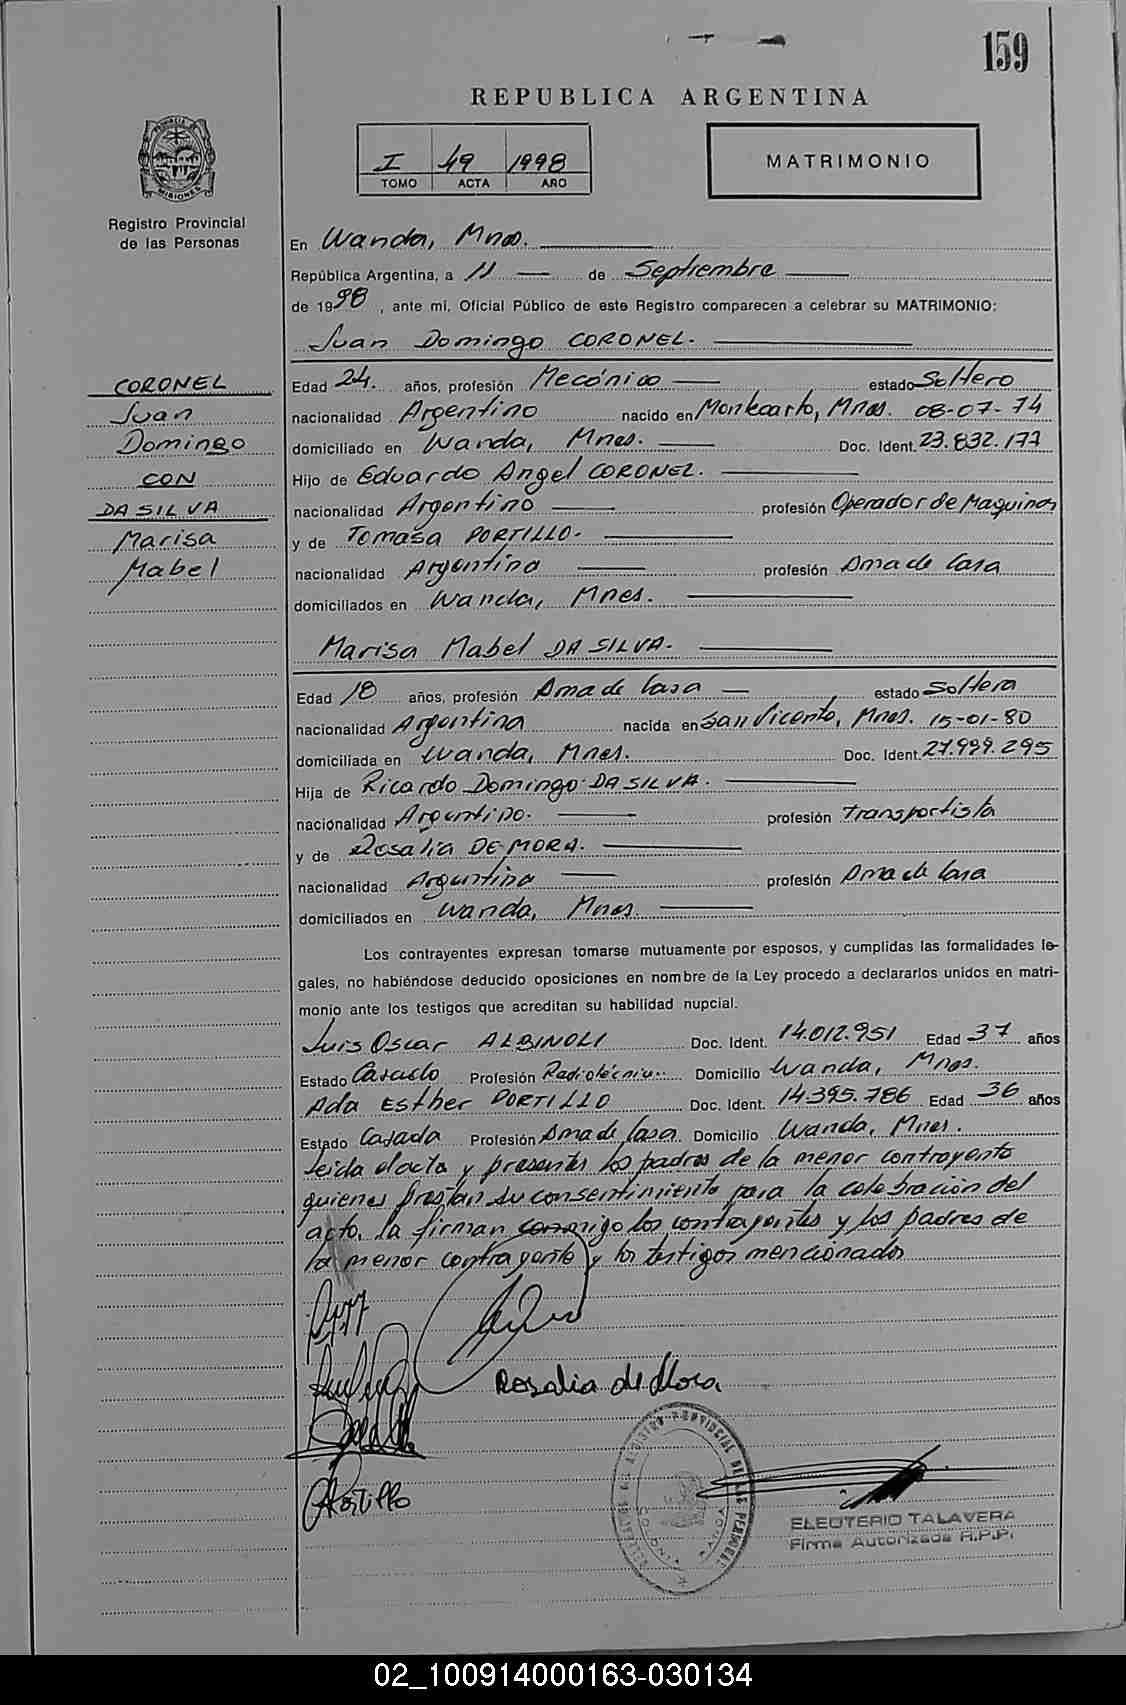 159
REPUBLICA ARGENTINA
I 49 1998
TOMO ACTA AÑO
MATRIMONIO
PROVINCIA DE MISIONES
Registro Provincial
de las Personas
En Wanda, Mnes.
República Argentina, a 11 — de Septiembre
de 1998, ante mi, Oficial Público de este Registro comparecen a celebrar su MATRIMONIO:
Juan Domingo CORONEL.
CORONEL
Juan
Domingo
CON
DA SILVA
Marisa
Mabel
Edad 24. años, profesión Mecánico — estado Soltero
nacionalidad Argentino nacido en Montecarlo, Mnes. 08-07-74
domiciliado en Wanda, Mnes. — Doc. Ident. 23.832.177
Hijo de Eduardo Angel CORONEL.
nacionalidad Argentino — profesión Operador de Maquinas
y de Tomasa PORTILLO.
nacionalidad Argentina — profesión Ama de Casa
domiciliados en Wanda, Mnes.
Marisa Mabel DA SILVA.
Edad 18 años, profesión Ama de Casa — estado Soltera
nacionalidad Argentina nacida en San Vicente, Mnes. 15-01-80
domiciliada en Wanda, Mnes. Doc. Ident. 27.999.295
Hija de Ricardo Domingo DA SILVA.
nacionalidad Argentino. — profesión Transportista
y de Rosalia DE MORA.
nacionalidad Argentina — profesión Ama de Casa
domiciliados en Wanda, Mnes.
Los contrayentes expresan tomarse mutuamente por esposos, y cumplidas las formalidades le-
gales, no habiéndose deducido oposiciones en nombre de la Ley procedo a declararlos unidos en matri-
monio ante los testigos que acreditan su habilidad nupcial.
Luis Oscar ALBINOLI Doc. Ident. 14.012.951 Edad 37 años
Estado Casado Profesión Radiotécnico Domicilio Wanda, Mnes.
Ada Esther PORTILLO Doc. Ident. 14.395.786 Edad 36 años
Estado Casada Profesión Ama de Casa Domicilio Wanda, Mnes.
Leida el acta y presentes los padres de la menor contrayente
quienes prestan su consentimiento para la celebración del
acto, la firman conmigo los contrayentes y los padres de
la menor contrayente y los testigos mencionados
Rosalia de Mora
Portillo
ELEUTERIO TALAVERA
Firma Autorizada R.P.P.
02_100914000163-030134